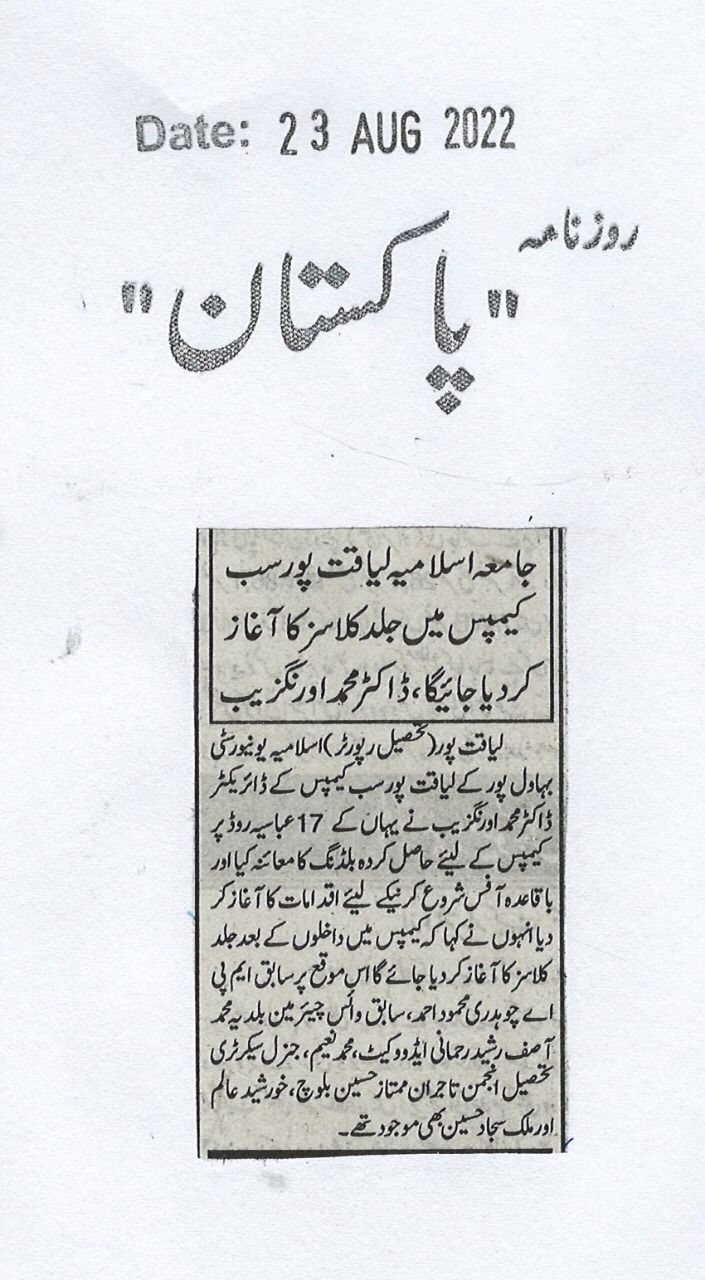 Date: 23 AUG 2022
روزنامہ
"پاکستان"
جامعہ اسلامیہ لیاقت پور سب
کیمپس میں جلد کلاسز کا آغاز
کر دیا جائیگا، ڈاکٹر محمد اورنگزیب
لیاقت پور (تحصیل رپورٹر) اسلامیہ یونیورسٹی
بہاول پور کے لیاقت پور سب کیمپس کے ڈائریکٹر
ڈاکٹر محمد اورنگزیب نے یہاں کے 17 عباسیہ روڈ پر
کیمپس کے لیئے حاصل کردہ بلڈنگ کا معائنہ کیا اور
باقاعدہ آفس شروع کرنیکے لیئے اقدامات کا آغاز کر
دیا انہوں نے کہا کہ کیمپس میں داخلوں کے بعد جلد
کلاسز کا آغاز کر دیا جائے گا اس موقع پر سابق ایم پی
اے چوہدری محمود احمد، سابق وائس چیئرمین بلدیہ محمد
آصف رشید رحمانی ایڈووکیٹ، محمد نعیم، جنرل سیکرٹری
تحصیل انجمن تاجران ممتاز حسین بلوچ، خورشید عالم
اور ملک سجاد حسین بھی موجود تھے۔